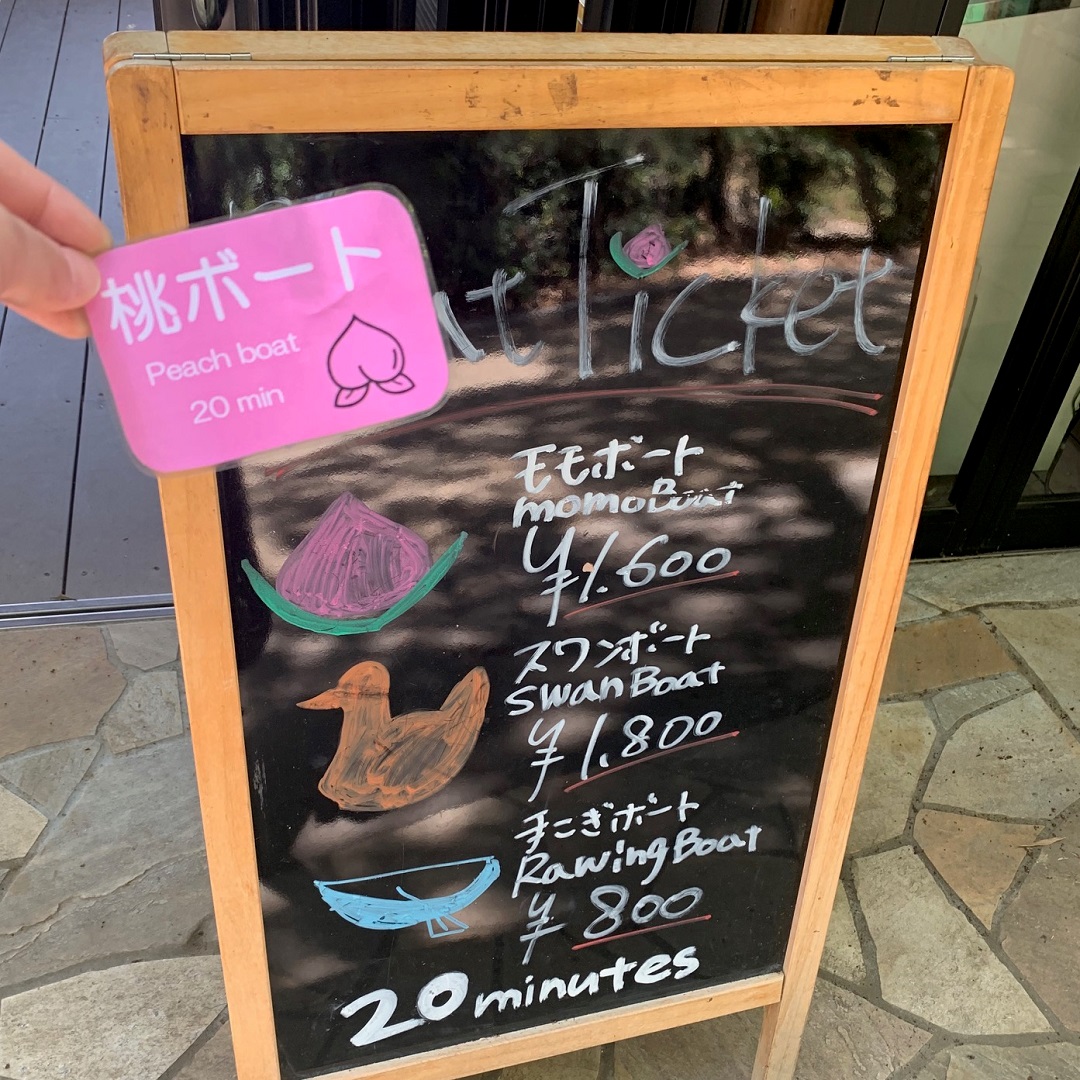 桃ボート
Peach boat
20 min
Ticket
モモボート
momoBoat
¥1.600
スワンボート
swanBoat
¥1.800
手こぎボート
RawingBoat
¥800
20minutes